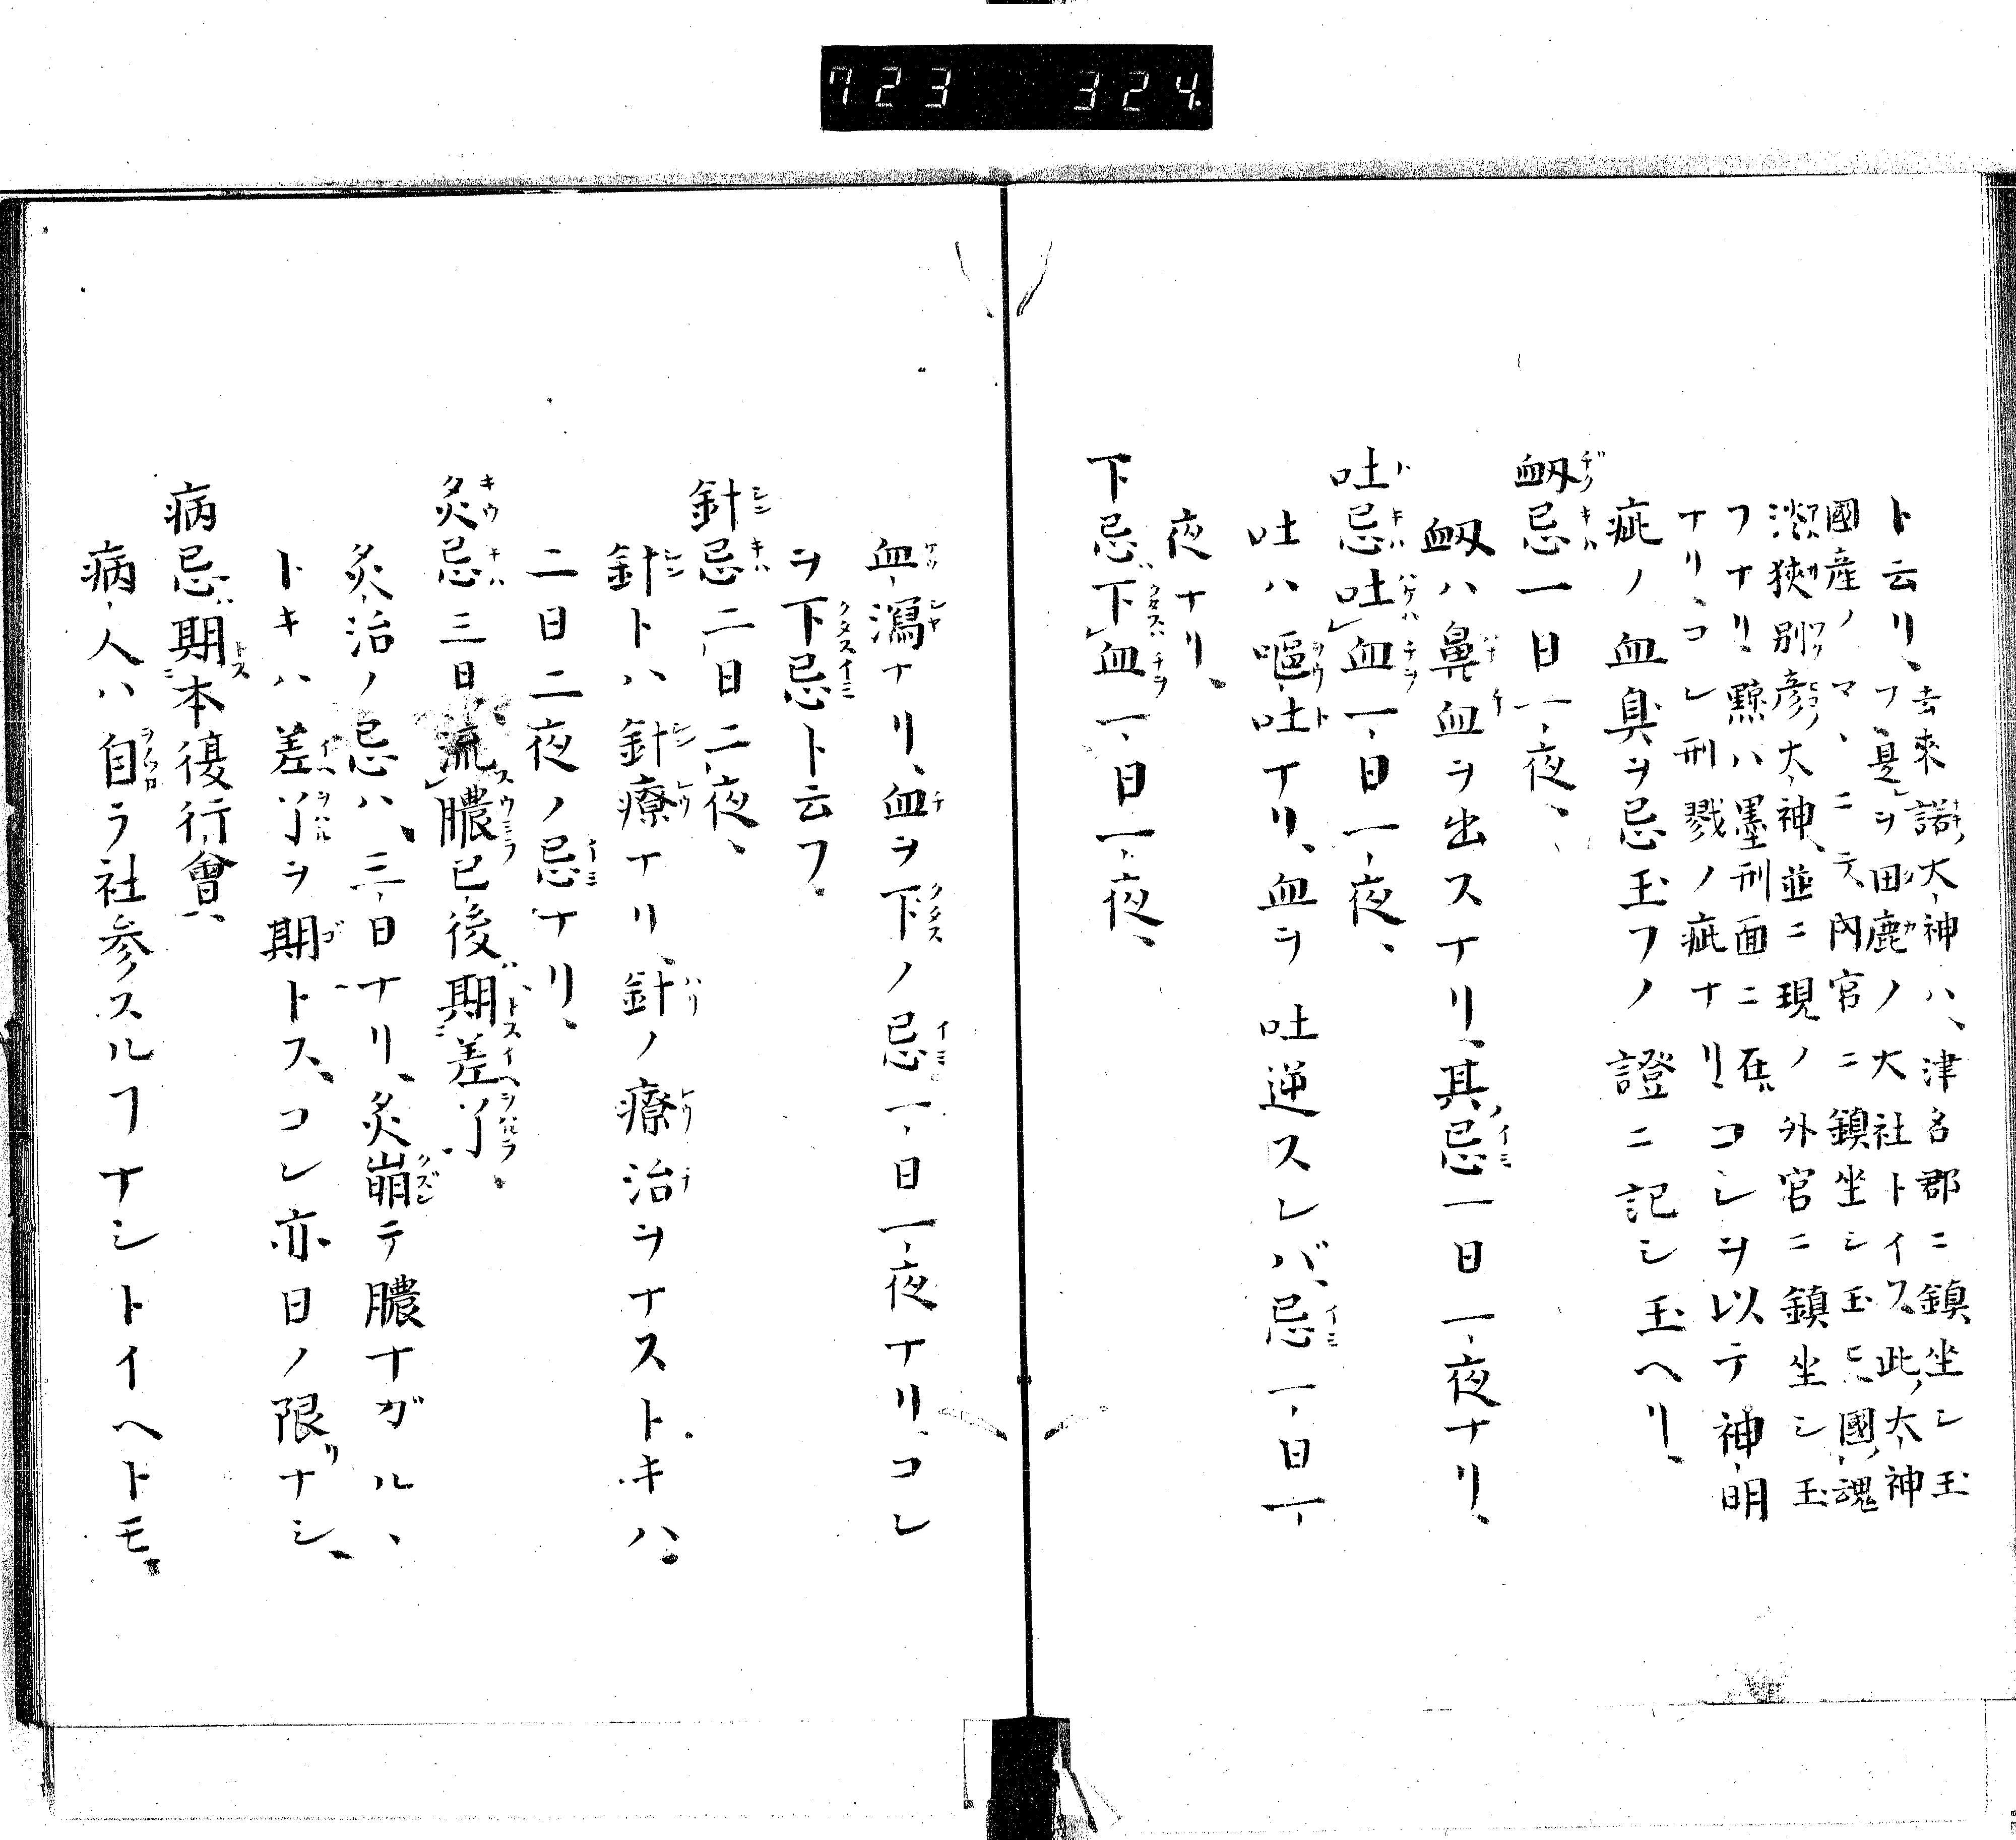 723 324.
ト云リ、去來諾大神ハ、津名郡ニ鎮坐シ玉
フ、是ヲ田鹿ノ大社トイフ、此大神
國産ノマヽニテ内宮ニ鎮坐シ玉ヒ、國魂
淡狹別彦大神、並ニ現ノ外宮ニ鎮坐シ玉
フナリ、黥ハ墨刑面ニ在コレヲ以テ神明
ナリ、コレ刑戮ノ疵ナリ
疵ノ血臭ヲ忌玉フノ證ニ記シ玉ヘリ、
衂忌一日一夜、
衂ハ鼻血ヲ出スナリ、其忌一日一夜ナリ、
吐忌吐血一日一夜、
吐ハ嘔吐ナリ、血ヲ吐逆スレバ、忌一日一
夜ナリ、
下忌下血一日一夜、
血瀉ナリ、血ヲ下ノ忌一日一夜ナリ、コレ
ヲ下忌ト云フ、
針忌二日二夜、
針トハ針療ナリ、針ノ療治ヲナストキハ、
二日二夜ノ忌ナリ、
灸忌三日流膿已後期差了、
灸治ノ忌ハ、三日ナリ、灸崩テ膿ナガル、
トキハ差了ヲ期トス、コレ亦日ノ限リナシ、
病忌期本復行會、
病人ハ自ラ社参スルヿナシトイヘトモ、